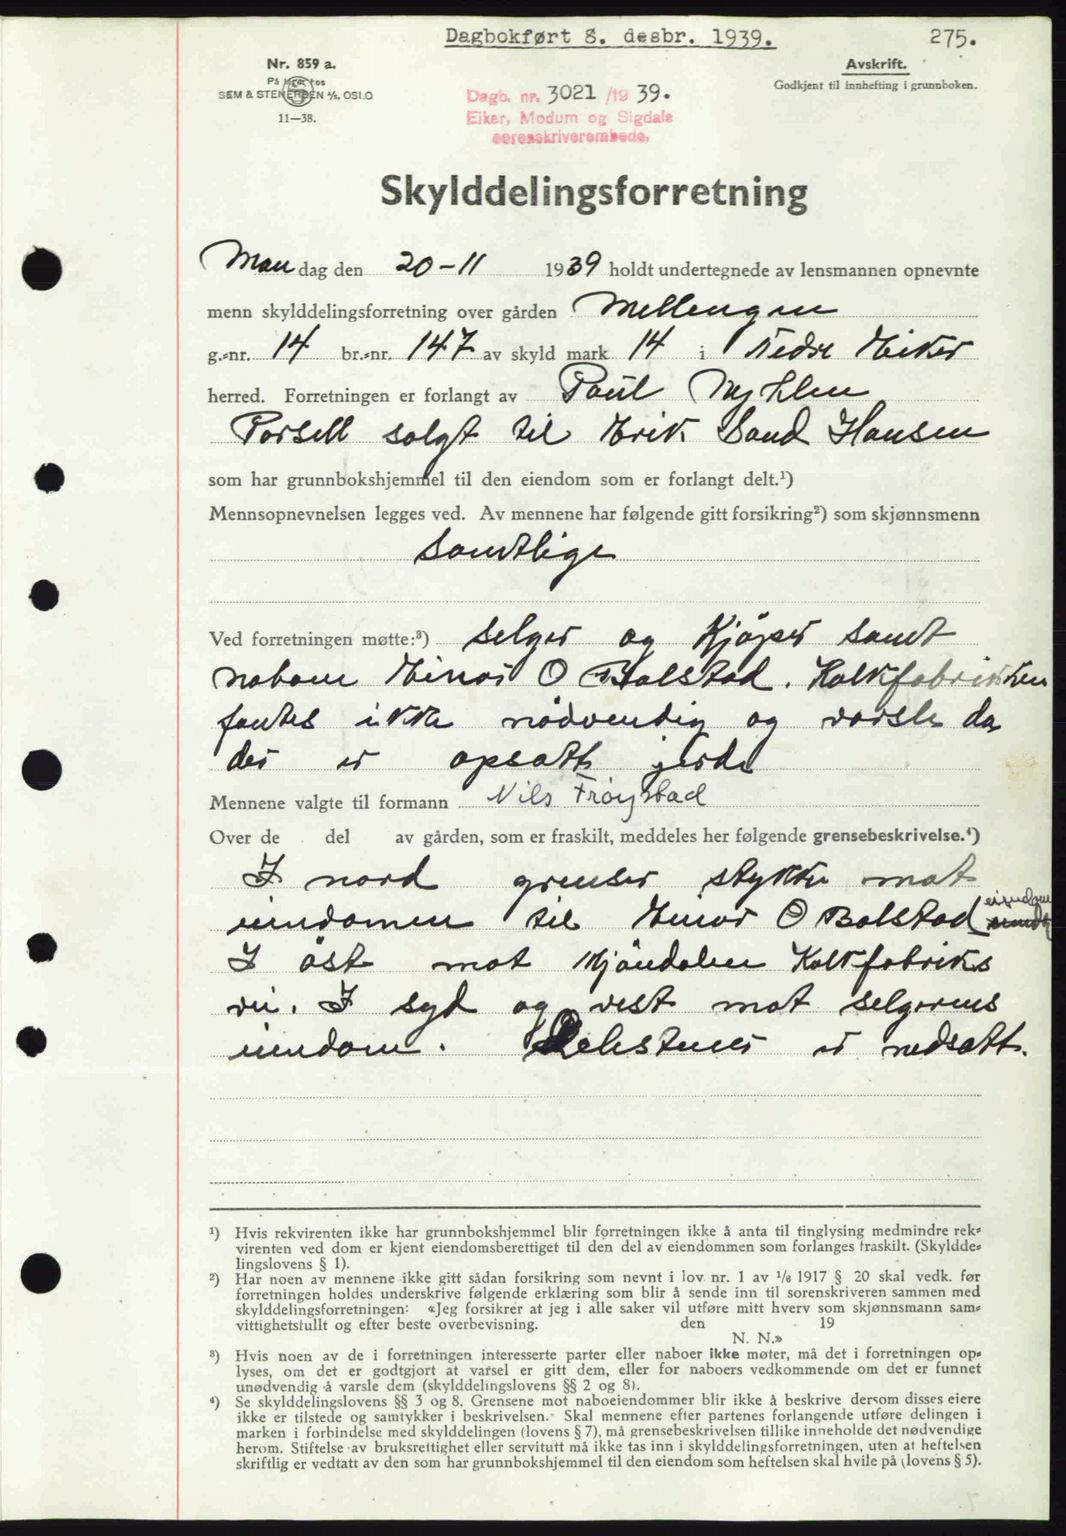 Dagbokført 8. desbr. 1939.
275.
Nr. 859 a.
På lager hos
SEM & STENERSEN A/S, OSLO
11—38.
Avskrift.
Godkjent til innhefting i grunnboken.
Dagb. nr. 3021/1939.
Eiker, Modum og Sigdals
sorenskriverembede.
Skylddelingsforretning
Mandag den 20-11 1939 holdt undertegnede av lensmannen opnevnte
menn skylddelingsforretning over gården Mellengen
g.-nr. 14 br.-nr. 147 av skyld mark 14 i Nedre Eiker
herred. Forretningen er forlangt av Paul
Parsell solgt til Erik Sand Hansen
som har grunnbokshjemmel til den eiendom som er forlangt delt.¹)
Mennsopnevnelsen legges ved. Av mennene har følgende gitt forsikring²) som skjønnsmenn
Samtlige
Ved forretningen møtte:³) selger og Kjøper samt
naboen Einar O Bolstad. Kalkfabrikken
fantes ikke nödvendig og varsle da
der er opsatt jerde
Mennene valgte til formann Nils Frøystad
Over de del av gården, som er fraskilt, meddeles her følgende grensebeskrivelse.⁴)
I nord grenser stykke mot
eiendomen til Einar O Bolstad eiendom
I öst mot Mjöndalen Kalkfabriks
vei. I syd og vest mot selgerens
eiendom. Delestener er nedsatt.
¹) Hvis rekvirenten ikke har grunnbokshjemmel blir forretningen ikke å anta til tinglysing medmindre rek-
virenten ved dom er kjent eiendomsberettiget til den del av eiendommen som forlanges fraskilt. (Skyldde-
lingslovens § 1).
²) Har noen av mennene ikke gitt sådan forsikring som nevnt i lov nr. 1 av 1/6 1917 § 20 skal vedk. før
forretningen holdes underskrive følgende erklæring som blir å sende inn til sorenskriveren sammen med
skylddelingsforretningen: «Jeg forsikrer at jeg i alle saker vil utføre mitt hverv som skjønnsmann sam-
vittighetsfullt og efter beste overbevisning. den 19
N. N.»
³) Hvis noen av de i forretningen interesserte parter eller naboer ikke møter, må det i forretningen op-
lyses, om det er godtgjort at varsel er gitt dem, eller for naboers vedkommende om det er funnet
unødvendig å varsle dem (skylddelingslovens §§ 2 og 8).
⁴) Se skylddelingslovens §§ 3 og 8. Grensene mot naboeiendommer blir ikke å beskrive dersom disses eiere
ikke er tilstede og samtykker i beskrivelsen. Skal mennene efter partenes forlangende utføre delingen i
marken i forbindelse med skylddelingen (lovens § 7), må grensebeskrivelsen tillike inneholde det nødvendige
herom. Stiftelse av bruksrettighet eller servitutt må ikke tas inn i skylddelingsforretningen, uten at heftelsen
skriftlig er vedtatt av den som har grunnbokshjemmel til den eiendom som heftelsen skal hvile på (lovens § 5).